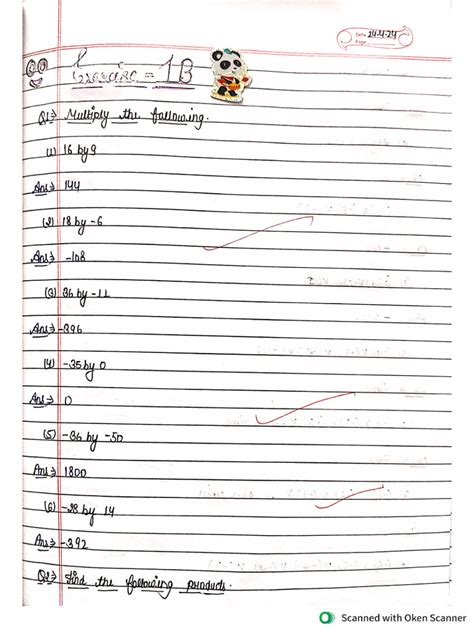 Date 24-4-24
Page
Exercise = 1B
Q1→ Multiply the following.
(1) 16 by 9
Ans→ 144
(2) 18 by -6
Ans→ -108
(3) 36 by -11
Ans→ -396
(4) -35 by 0
Ans→ 0
(5) -36 by -50
Ans→ 1800
(6) -28 by 14
Ans→ -392
Q2→ Find the following products.
Scanned with Oken Scanner